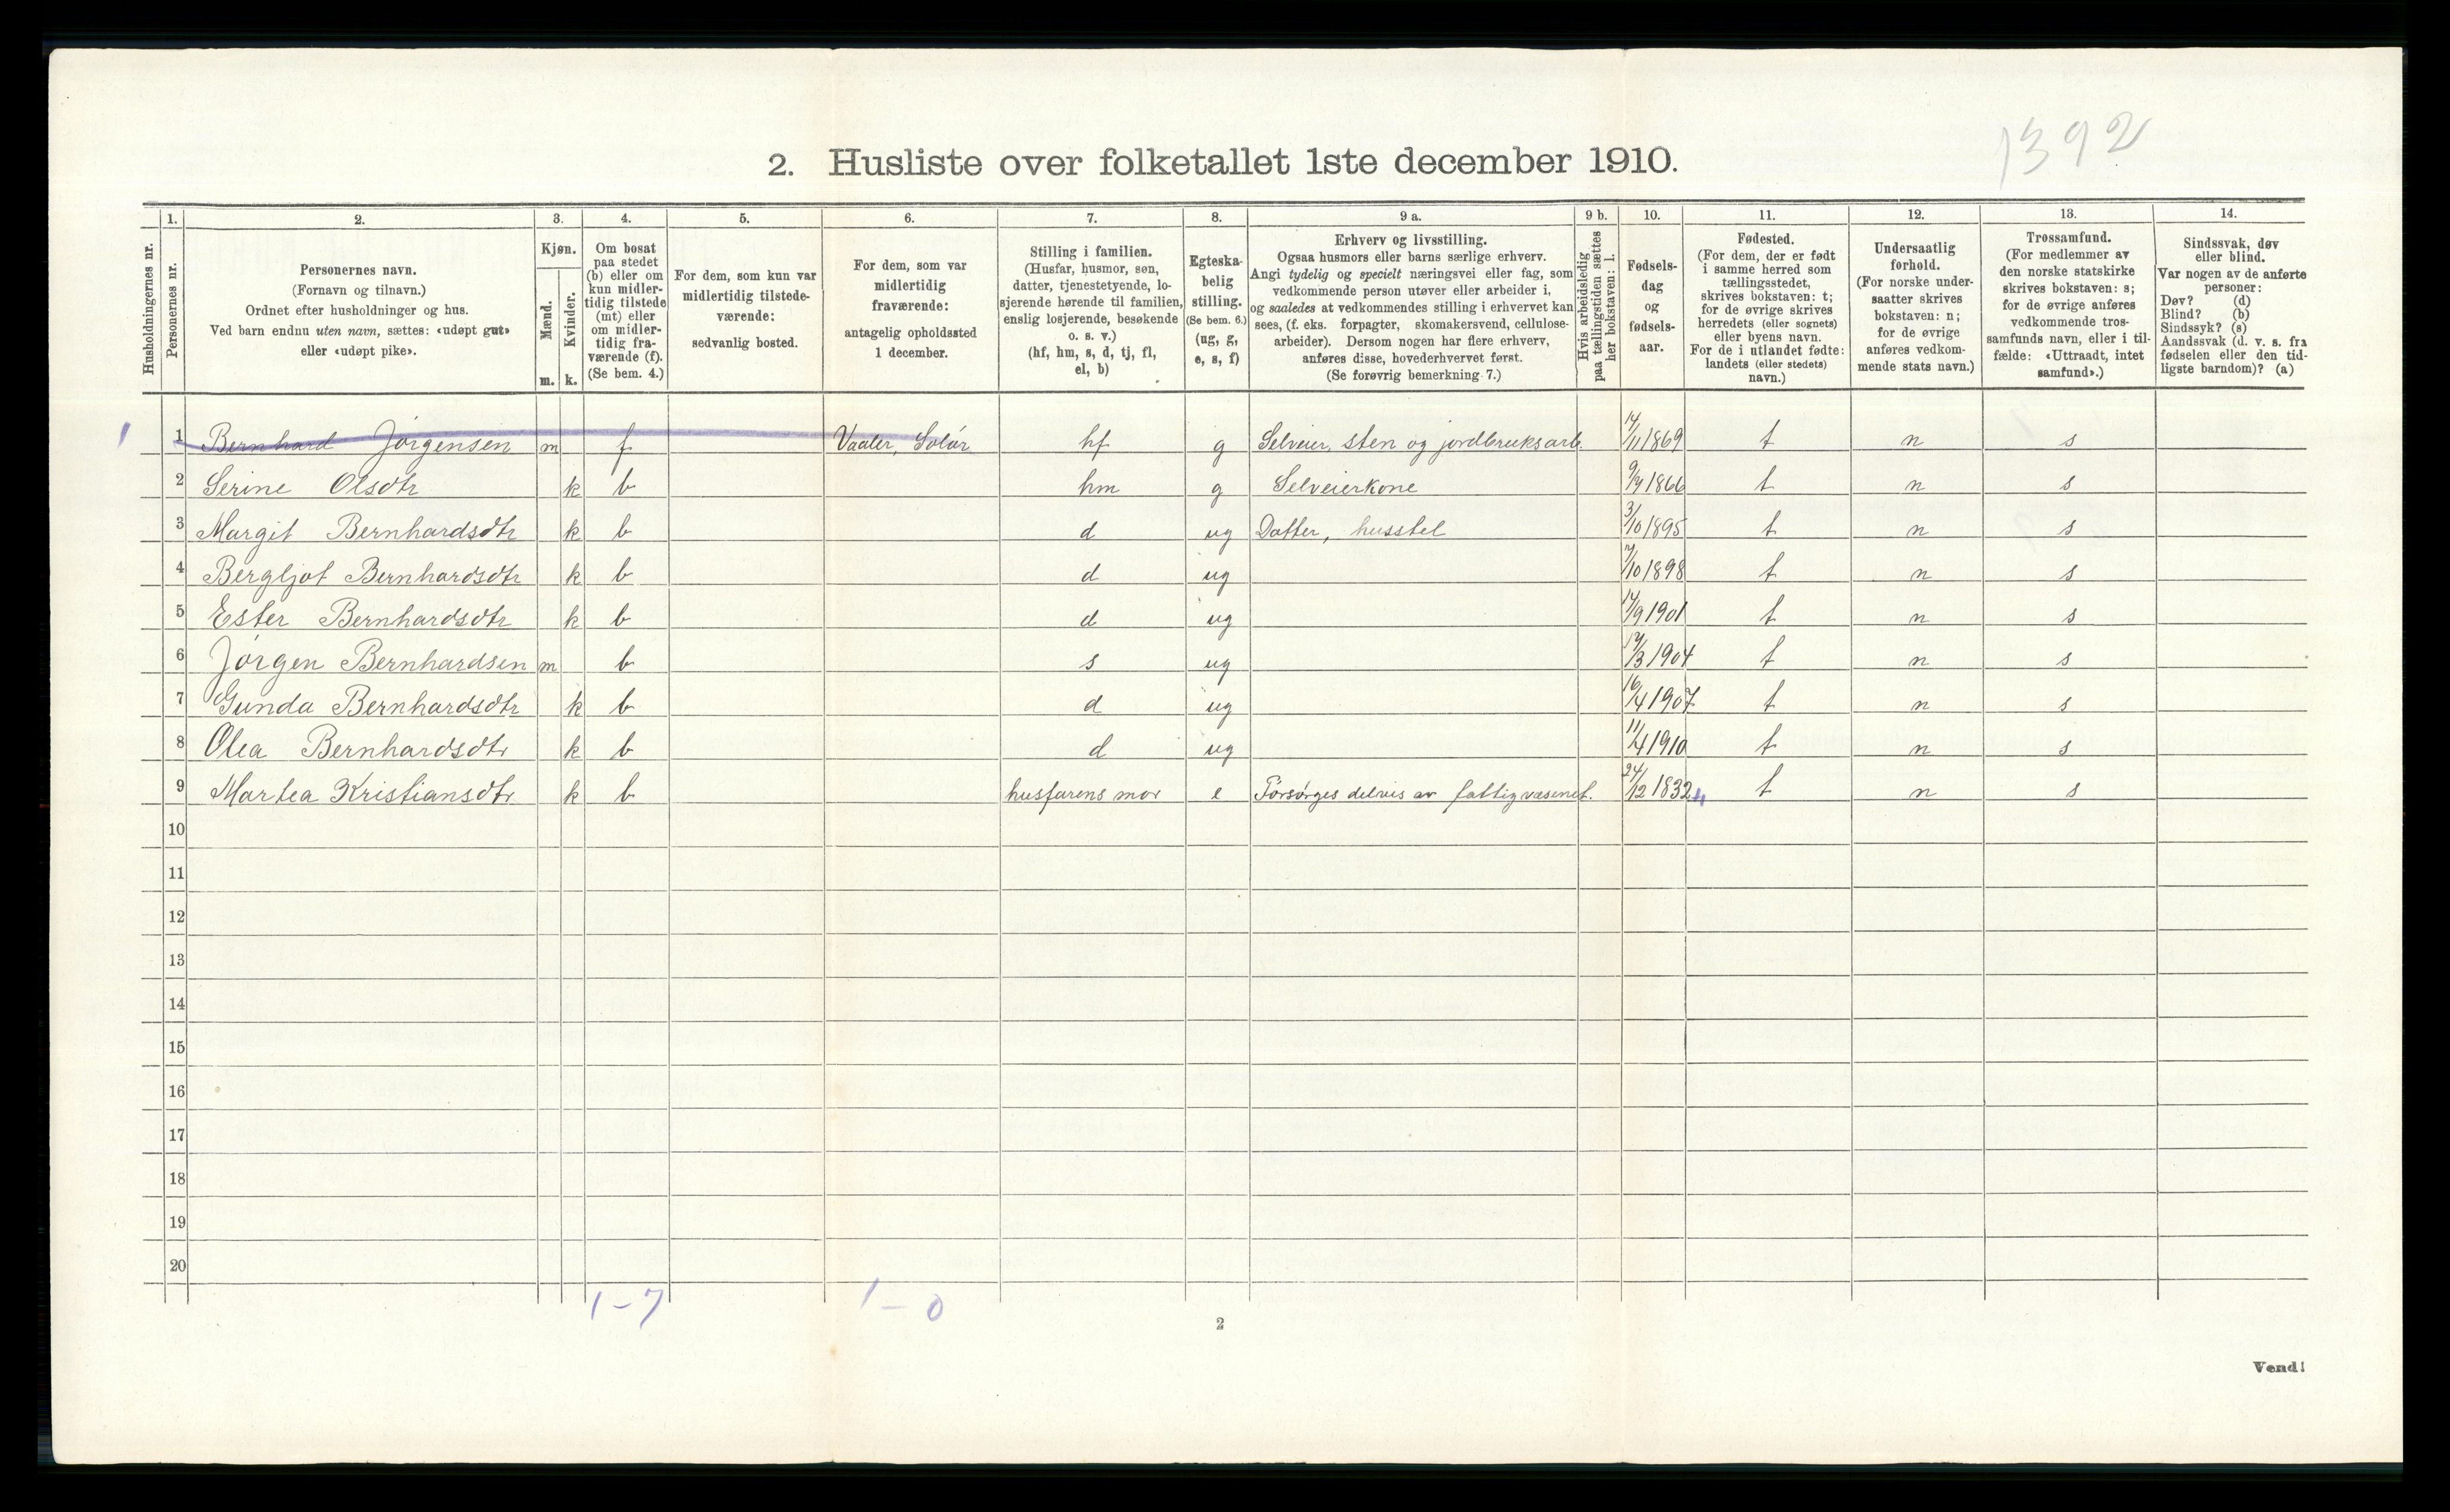 1392
2. Husliste over folketallet 1ste december 1910.
Husholdningernes nr.
1.
Personernes nr.
2.
Personernes navn.
(Fornavn og tilnavn.)
Ordnet efter husholdninger og hus.
Ved barn endnu uten navn, sættes: «udøpt gut»
eller «udøpt pike».
3.
Kjøn.
Mænd.
Kvinder.
m. k.
4.
Om bosat
paa stedet
(b) eller om
kun midler-
tidig tilstede
(mt) eller
om midler-
tidig fra-
værende (f).
(Se bem. 4.)
5.
For dem, som kun var
midlertidig tilstede-
værende:
sedvanlig bosted.
6.
For dem, som var
midlertidig
fraværende:
antagelig opholdssted
1 december.
7.
Stilling i familien.
(Husfar, husmor, søn,
datter, tjenestetyende, lo-
sjerende hørende til familien,
enslig losjerende, besøkende
o. s. v.)
(hf, hm, s, d, tj, fl,
el, b)
8.
Egteska-
belig
stilling.
(Se bem. 6.)
(ug, g,
e, s, f)
9 a.
Erhverv og livsstilling.
Ogsaa husmors eller barns særlige erhverv.
Angi tydelig og specielt næringsvei eller fag, som
vedkommende person utøver eller arbeider i,
og saaledes at vedkommendes stilling i erhvervet kan
sees, (f. eks. forpagter, skomakersvend, cellulose-
arbeider). Dersom nogen har flere erhverv,
anføres disse, hovederhvervet først.
(Se forøvrig bemerkning 7.)
9 b.
Hvis arbeidsledig
paa tællingstiden sættes
her bokstaven: l.
10.
Fødsels-
dag
og
fødsels-
aar.
11.
Fødested.
(For dem, der er født
i samme herred som
tællingsstedet,
skrives bokstaven: t;
for de øvrige skrives
herredets (eller sognets)
eller byens navn.
For de i utlandet fødte:
landets (eller stedets)
navn.)
12.
Undersaatlig
forhold.
(For norske under-
saatter skrives
bokstaven: n;
for de øvrige
anføres vedkom-
mende stats navn.)
13.
Trossamfund.
(For medlemmer av
den norske statskirke
skrives bokstaven: s;
for de øvrige anføres
vedkommende tros-
samfunds navn, eller i til-
fælde: «Uttraadt, intet
samfund».)
14.
Sindssvak, døv
eller blind.
Var nogen av de anførte
personer:
Døv? (d)
Blind? (b)
Sindssyk? (s)
Aandssvak (d. v. s. fra
fødselen eller den tid-
ligste barndom)? (a)
1 1 Bernhard Jørgensen m f Vaaler, Solør hf g Selveier, sten og jordbruksarb. 14/11 1869 t n s
2 Serine Olsdtr k b hm g Selveierkone 1866 t n s
3 Margit Bernhardsdtr k b d ug Datter, husstel 3/10 1895 t n s
4 Bergljot Bernhardsdtr k b d ug 7/10 1898 t n s
5 Ester Bernhardsdtr k b d ug 17/9 1901 t n s
6 Jørgen Bernhardsen m b s ug /3 1904 t n s
7 Gunda Bernhardsdtr k b d ug 16/4 1907 t n s
8 Olea Bernhardsdtr k b d ug 11/4 1910 t n s
9 Martea Kristiansdtr k b husfarens mor e Forsørges delvis av fattigvæsenet. 24/12 1832 4 t n s
10
11
12
13
14
15
16
17
18
19
20
1 - 7 1 - 0
2
Vend!